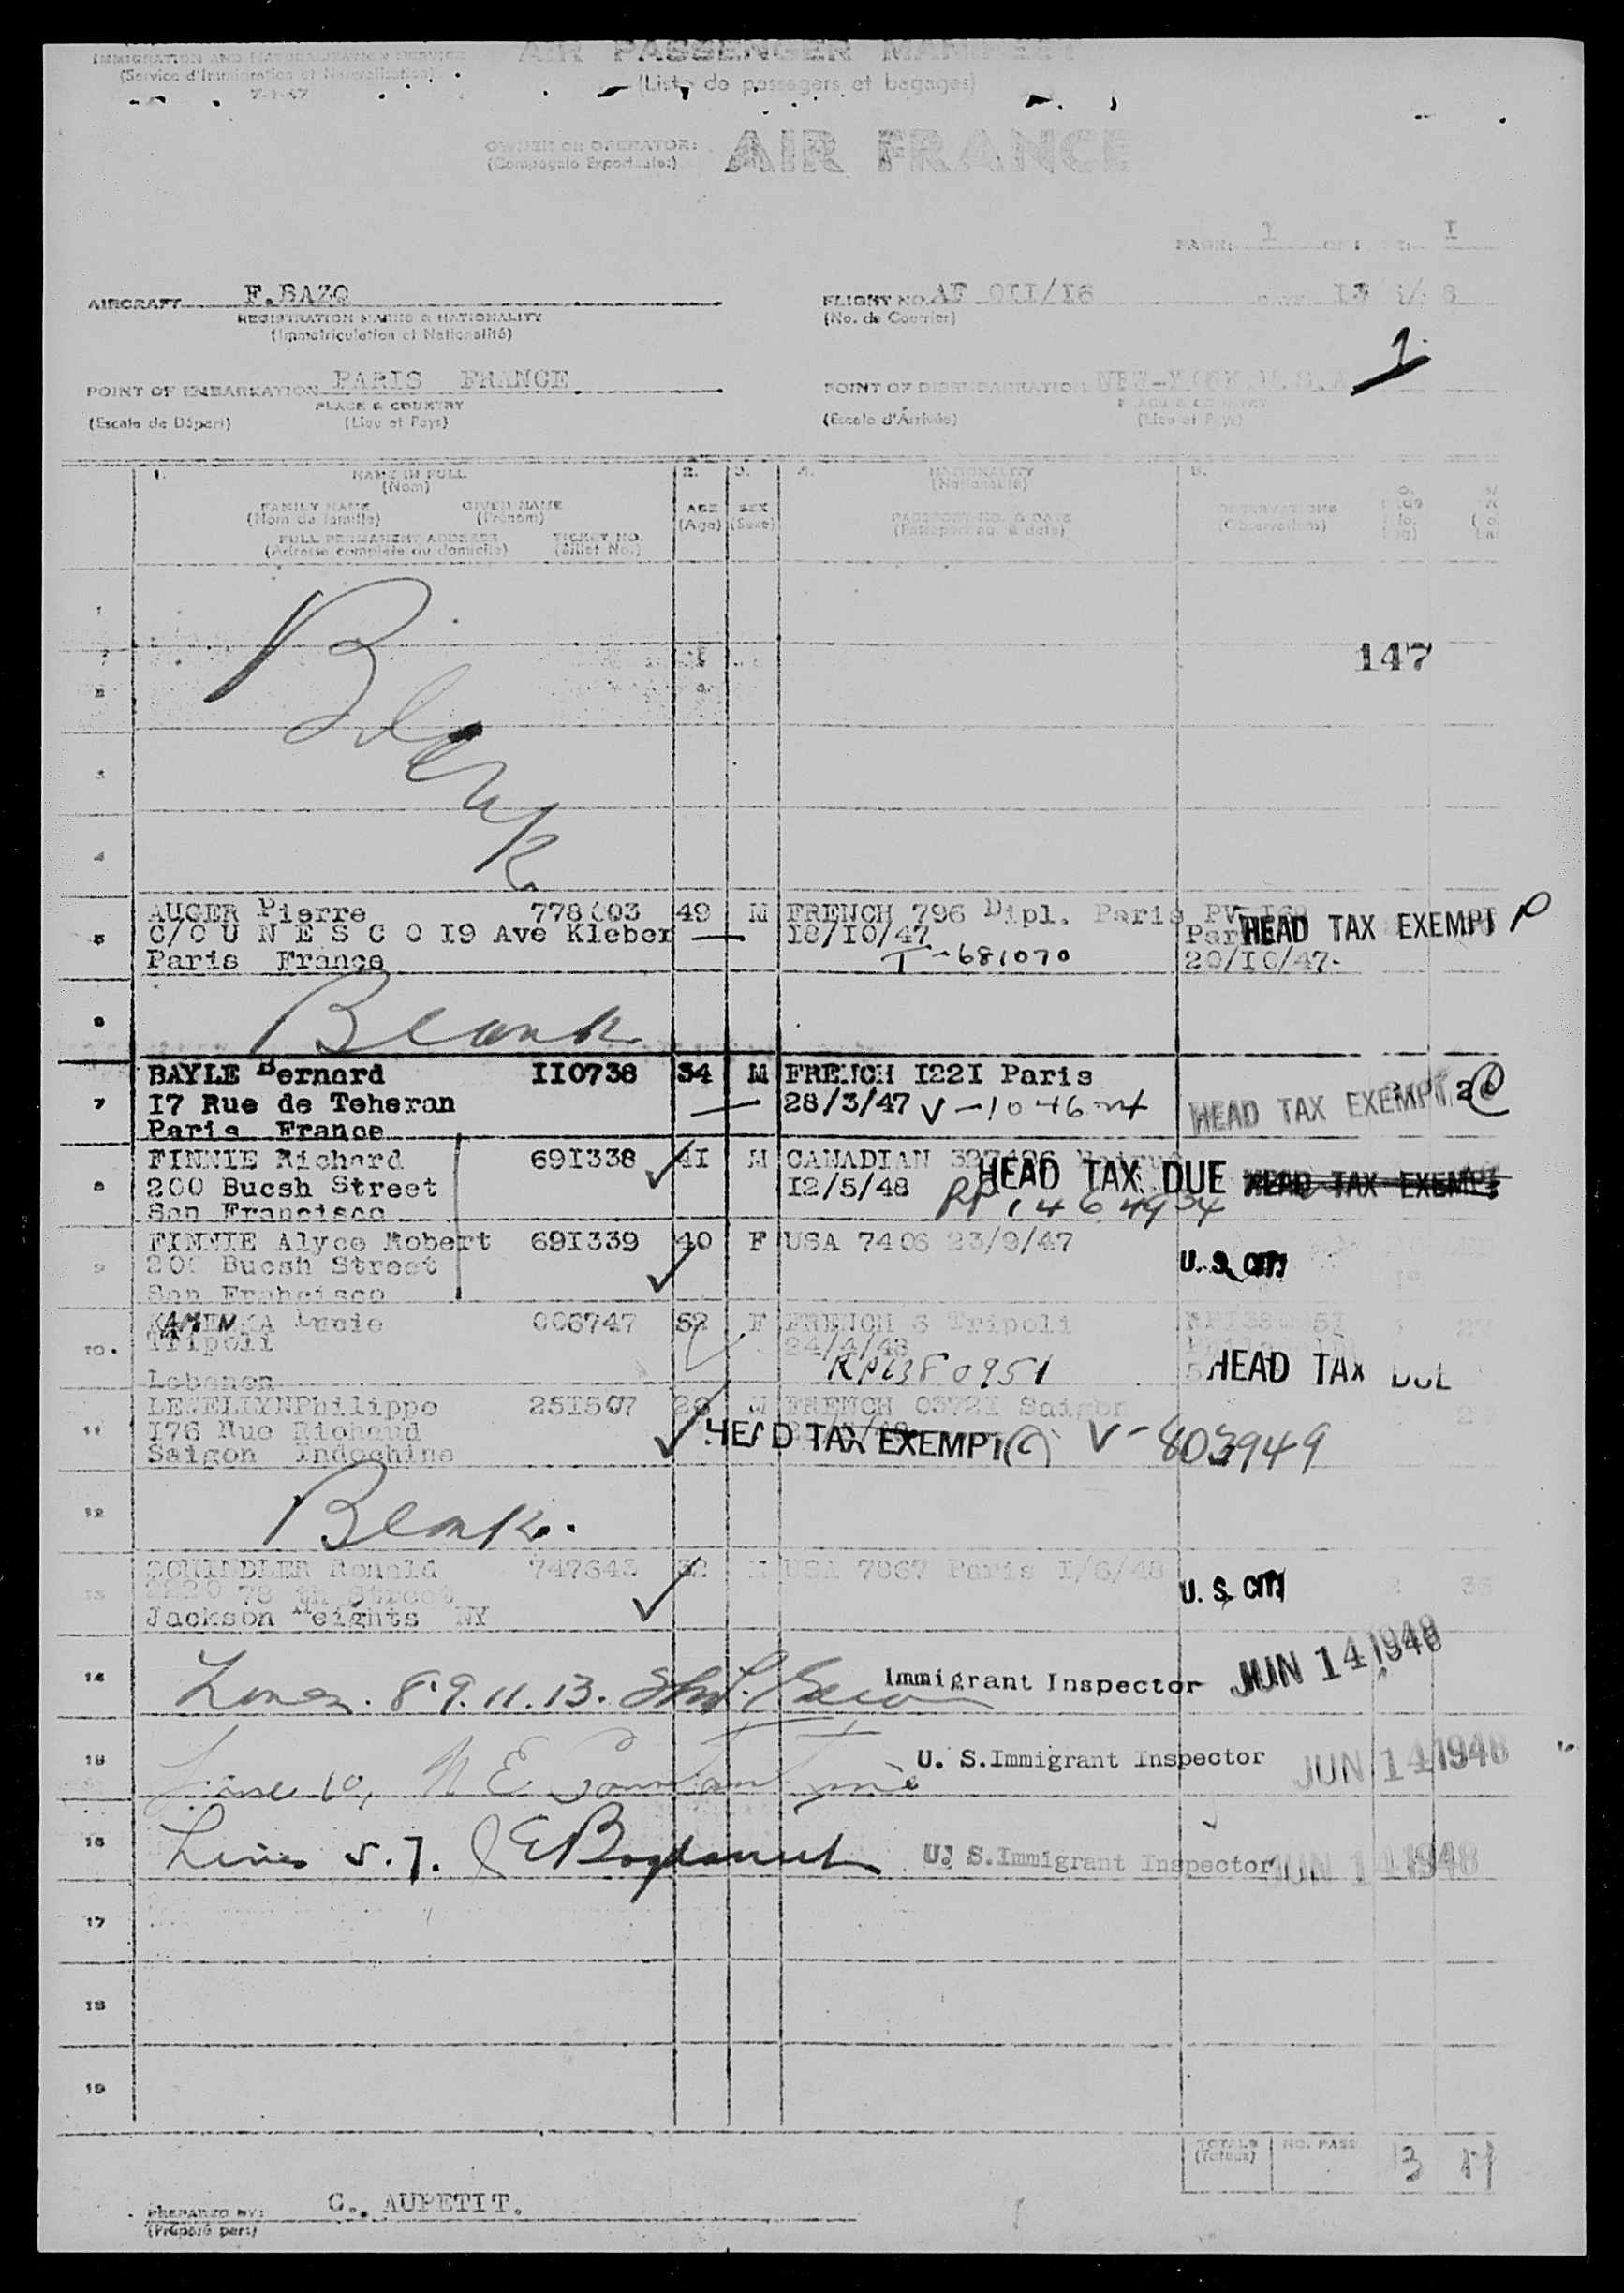 IMMIGRATION AND NATURALISATION SERVICE
(Service d'Immigration et Naturalisation)
7-1-47
AIR PASSENGER MANIFEST
(Liste de passagers et bagages)
OWNER OR OPERATOR: AIR FRANCE
PAGE: 1 I
AIRCRAFT F.BAZQ
REGISTRATION MARKS & NATIONALITY
(Immatriculation et Nationalité)
FLIGHT NO. AF OII/I6
(No. de Courrier)
1.
POINT OF EMBARKATION PARIS FRANCE
PLACE & COUNTRY
(Escale de Départ) (Lieu et Pays)
POINT OF DISEMBARKATION NEW-YORK U.S.A
PLACE & COUNTRY
(Escale d'Arrivée) (Lieu et Pays)
1. NAME IN FULL
(Nom)
FAMILY NAME GIVEN NAME
(Nom de famille) (Prénom)
FULL PERMANENT ADDRESS TICKET NO.
(Adresse complète du domicile) (Billet No.)
2. AGE
(Age)
3. SEX
(Sexe)
4. NATIONALITY
(Nationalité)
PASSPORT NO. & DATE
(Passeport no. & date)
5. OBSERVATIONS
(Observations)
1
147
2
3
4
Blank
5 AUGER Pierre 778603 49 M FRENCH 796 Dipl. Paris
C/O U N E S C O I9 Ave Kleber — I8/IO/47 HEAD TAX EXEMPT P
Paris France T-681070 20/IO/47-
6 Blank
7 BAYLE Bernard II0738 34 M FRENCH I22I Paris
I7 Rue de Teheran — 28/3/47 HEAD TAX EXEMPT
Paris France
8 FINNIE Richard 69I338 4I M CANADIAN
200 Bucsh Street I2/5/48 HEAD TAX DUE HEAD TAX EXEMPT
San Francisco
9 FINNIE Alyce Robert 69I339 40 F USA 7406 23/9/47
200 Bucsh Street U.S. CITY
San Francisco
10. KAMENKA Lucie 006747 52 F FRENCH 6 Tripoli
Tripoli 24/4/48
Lebanon HEAD TAX DUE
11 LEWELLYNPhilippe 25I507 26 M FRENCH 0372I Saigon
I76 Rue Richaud HEAD TAX EXEMPT (C) V-803949
Saigon Indochine
12 Blank.
13 SCHINDLER Ronald 747643 32 M USA 7867 Paris I/6/48
78 th Street U. S. CITY
Jackson Heights NY
14 Lines. 8.9.11.13. Immigrant Inspector JUN 14 1948
15 Line 10, U. S.Immigrant Inspector JUN 14 1948
16 Lines 5.7. U. S.Immigrant Inspector JUN 14 1948
17
18
19
TOTALS
(Totaux)
NO. PASS
PREPARED BY: C.. AUPETIT.
(Préparé par:)